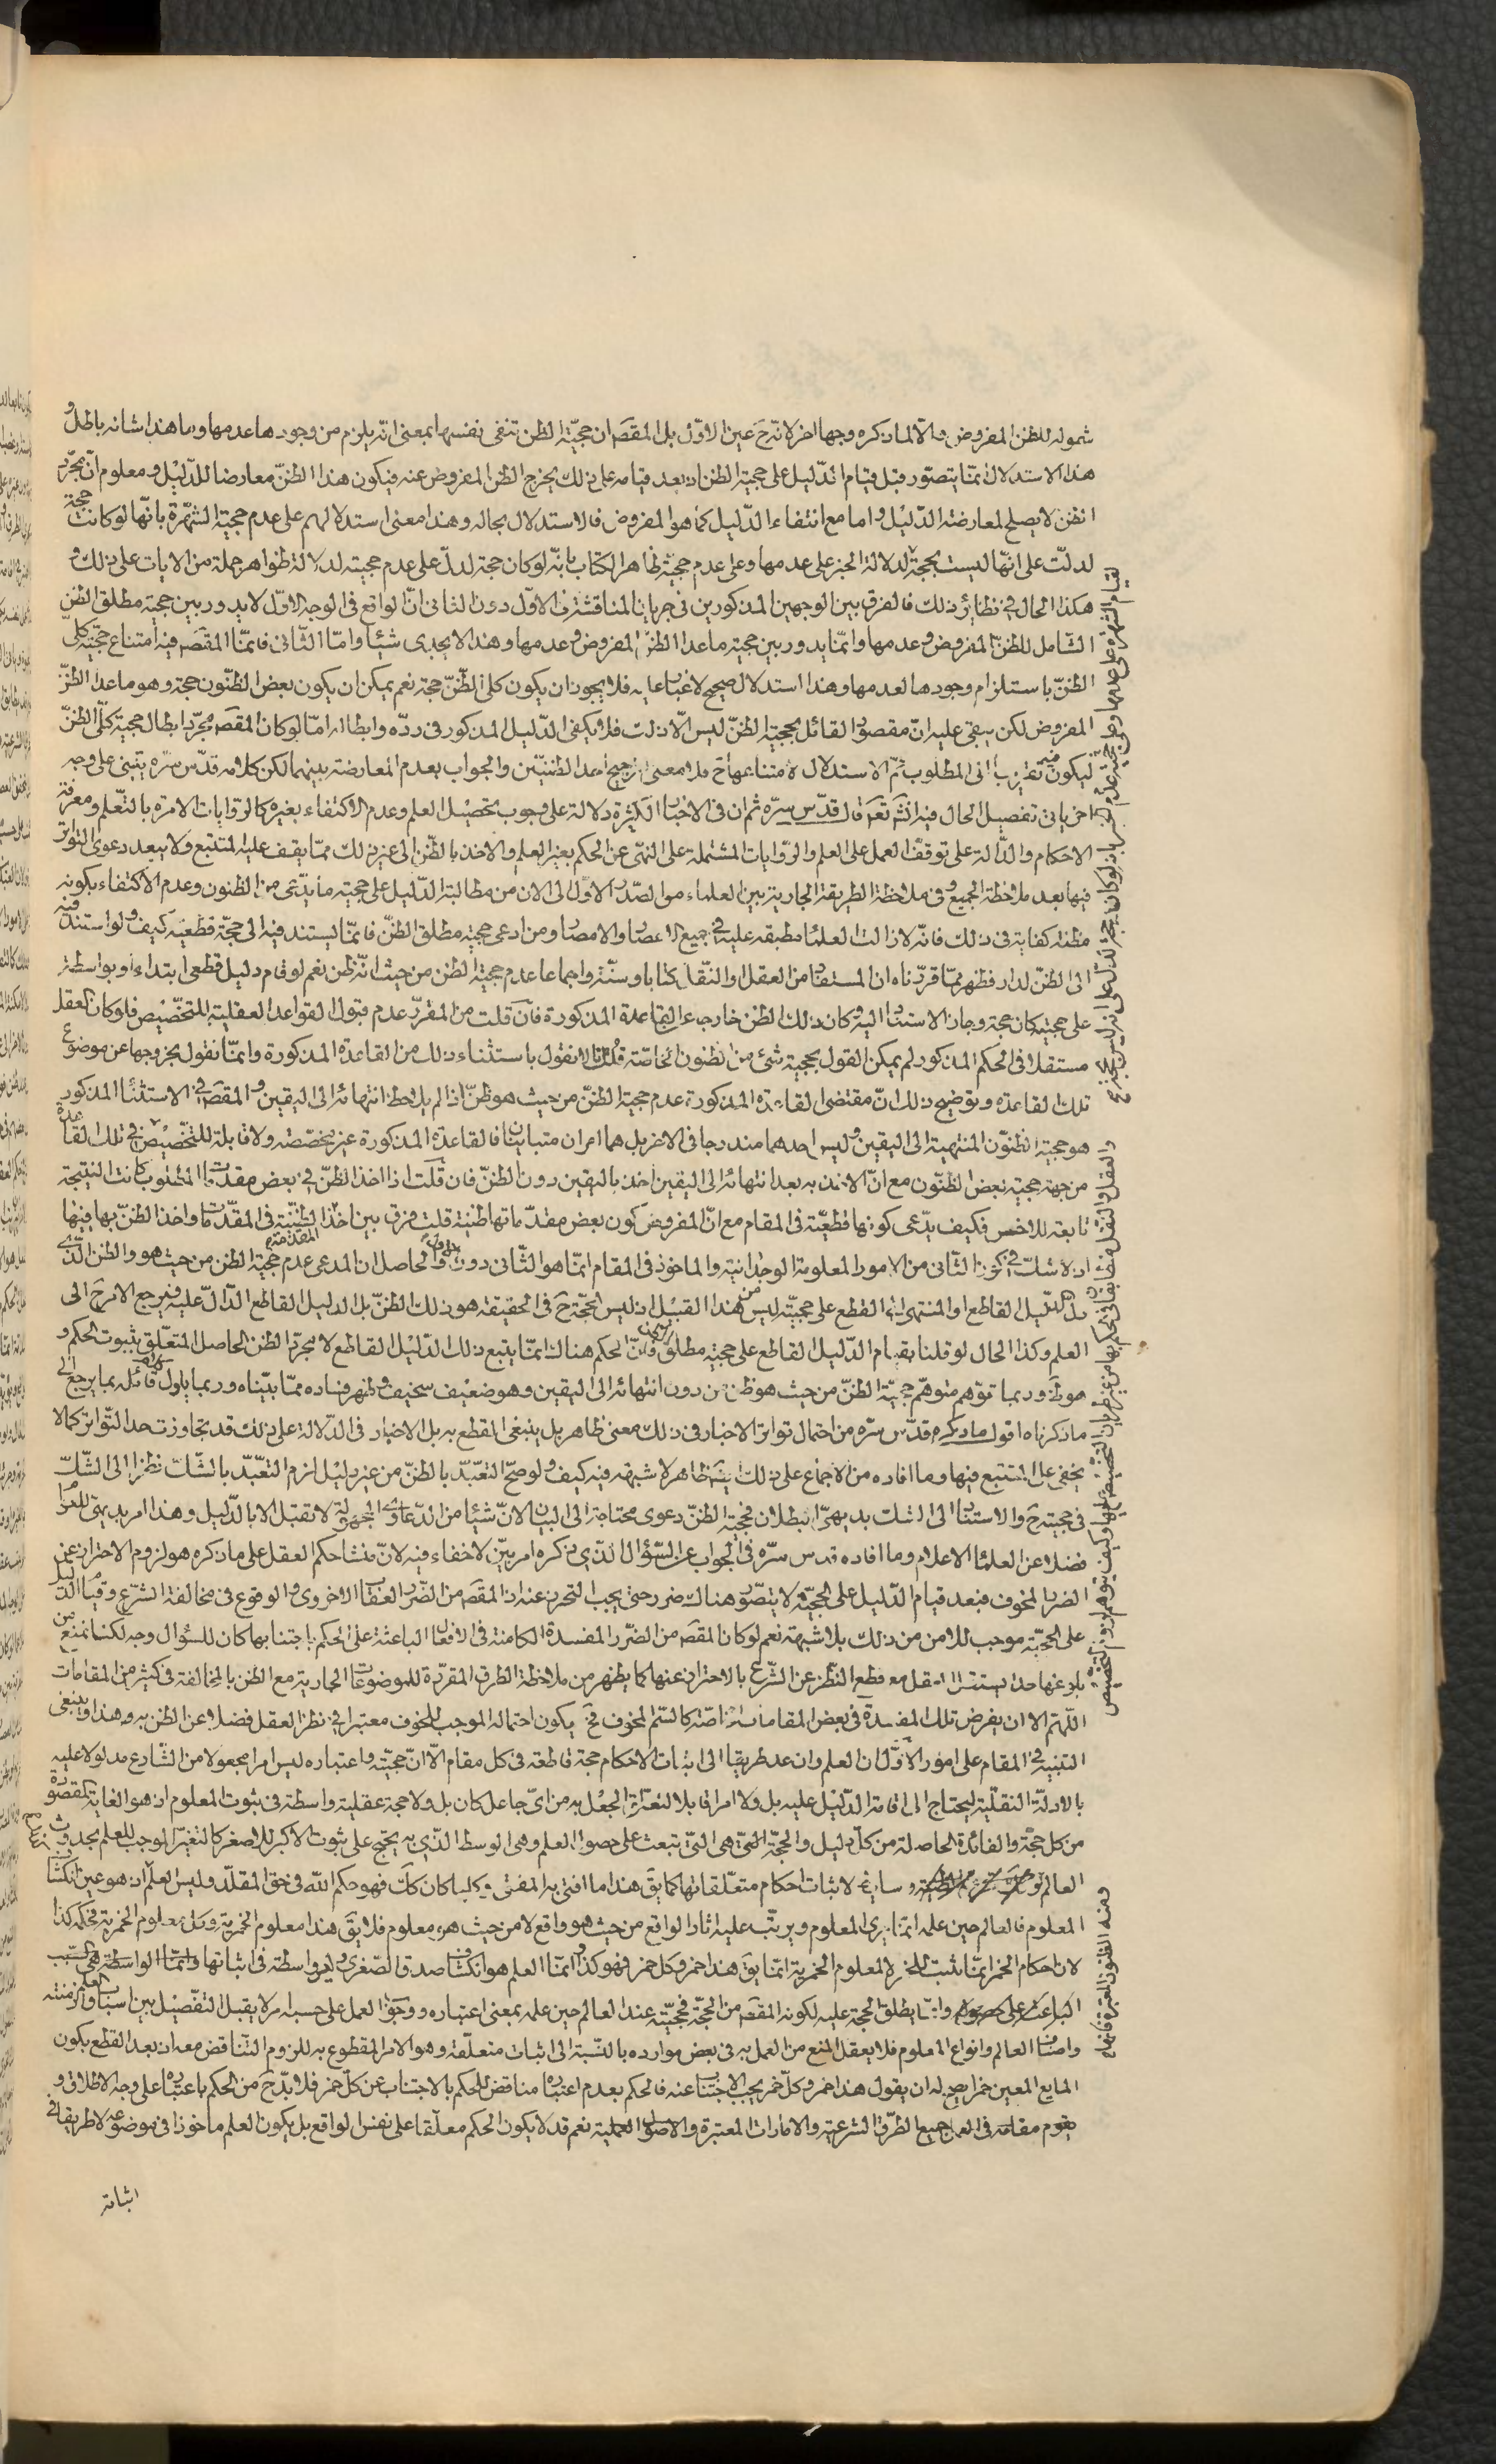 شموله للظن المفروض والا لما ذكره وجها اخر لانه ح عين الاوّل بل المقصَ ان حجيّة الظن تنفى نفسها بمعنى انّه يلزم من وجودها عدمها وما هذا شانه باطل و
هذا الاستدلال انمّا يتصوّر قبل قيام الدّليل على حجية الظن اذ بعد قيامه على ذلك يخرج الظن المفروض عنه فيكون هذا الظنّ معارضا للدّليل ومعلوم انّ مجرّد
الظن لا يصلح لمعارضة الدّليل واما مع انتفاء الدّليل كما هو المفروض فالاستدلال بحاله وهذا معنى استدلالهم على عدم حجية الشّهرة بانّها لو كانت حجة
لدلّت على انّها ليست بحجة لدلالة الخبر على عدمها وعلى عدم حجيّة ظاهر الكتاب بانّه لو كان حجة لدلّ على عدم حجيته لدلالة ظواهر جملة من الايات على ذلك و
هكذا الحال في نظاير ذلك فالفرق بين الوجهين المذكورين فى جريان المناقشة فى الاوّل دون الثانى انّ الواقع فى الوجه الاوّل لا يدور بين حجية مطلق الظن
الشّامل للظنّ المفروض وعدمها وانمّا يدور بين حجية ماعدا الظنّ المفروض وعدمها وهذا لا يجدى شيئا وامّا الثّانى فانمّا المقصَ فيه امتناع حجيّة كلّ
الظنّ باستلزام وجودها لعدمها وهذا استدلال صحيح لا غبار عليه فلا يجوز ان يكون كل الظّنّ حجة نعم يمكن ان يكون بعض الظنّون حجة وهو ماعدا الظنّ
المفروض لكن يبقى عليه انّ مقصود القائل بحجية الظنّ ليس الّا ذلك فلا يكفى الدّليل المذكور فى ردّه وابطاله امّا لو كان المقصَ مجرّد ابطال حجية كلّ الظنّ
ليكون فيه تقريب الى المطلوب ثمّ الاستدلال لامتناعها ح فلا معنى لترجيح احد الظنيّين والجواب بعدم المعارضة بينهما لكن كلامه قدّس سرّه يبتنى على وجه
اخر ياتى تفصيل الحال فيه انش تعَ قال قدّس سرّه ثم ان فى الاخبار الكثيرة دلالة على وجوب تحصيل العلم وعدم الاكتفاء بغيره كالروّايات الامرة بالتّعلم ومعرفة
الاحكام والدّالة على توقف العمل على العلم والرّوايات المشتملة على النهى عن الحكم بغير العلم والاخذ بالظّن الى غير ذلك ممّا يقف عليه المتتبع ولا يبعد دعوى التواتر
فيها بعد ملاحظة الجميع وفى ملاحظة الطريقة الجارية بين العلماء من الصّدر الاوّل الى الان من مطالبة الدّليل على حجية ما يدّعى من الظنون وعدم الاكتفاء بكونه
مظنة كفاية فى ذلك فانّه لا زالت العلماء مطبقة عليه فى جميع الاعصار والامصار ومن ادعى حجية مطلق الظنّ فانمّا يستند فيه الى حجّة قطعيّة كيف ولو استند فيه
الى الظنّ لدار فظهر ممّا قررّناه ان المستفاد من العقل والنّقل كتابا وسنّة واجماعا عدم حجية الظن من حيث انّه ظن نعم لو قام دليل قطعى ابتداء او بواسطة
على حجيته كان حجة وجاز الاستناد اليه وكان ذلك الظن خارجا عن القاعدة المذكورة فان قلت من المقرّر عدم قبول القواعد العقلية للتخصّيص فلو كان العقل
مستقلا فى الحكم المذكور لم يمكن القول بحجية شئ من الظنون الخاصّة قلنا لا نقول باستثناء ذلك من القاعدة المذكورة وانمّا نقول بخروجها عن موضوع
تلك القاعدة وتوضيح ذلك انّ مقتضى القاعدة المذكورة عدم حجية الظنّ من حيث هو ظنّ اذا لم يلاحظ انتهائه الى اليقين والمقصَ فى الاستثناء المذكور
هو حجية الظنّون المنتهية الى اليقين وليس احدهما مندرجا فى الاخر بل هما امران متباينان فالقاعدة المذكورة غير مخصّصة ولا قابلة للتّخصّيص فى تلك القاعدة
من جهة حجية بعض الظنّون مع انّ الاخذ به بعد انتهائه الى اليقين اخذ باليقين دون الظنّ فان قلت اذا اخذ الظنّ فى بعض مقدمات المطلوب كانت النتيجة
تابعة للاخس فكيف يدّعى كونها قطعيّة فى المقام مع انّ المفروض كون بعض مقدّماتها ظنية قلت فرق بين اخذ الظنّية فى المقدّمات واخذ الظنّ بها فيها
اذ لا شكّ فى كون الثّانى من الامور المعلومة الوجدانية والماخوذ فى المقام انمّا هو الثّانى دون الاول والحاصل ان المدعى عدم حجية الظن من حيث هو والظن الّذى
دلّ الدّليل القاطع او المنتهى الى القطع على حجيّته ليس من هذا القبيل اذ ليس الحجّة ح فى الحقيقة هو ذلك الظنّ بل الدليل القاطع الدّالّ عليه فيرجع الامر ح الى
العلم وكذا الحال لو قلنا بقيام الدّليل القاطع على حجية مطلق الظن فانّ الحكم هناك انمّا يتبع ذلك الدّليل القاطع لا مجرّد الظن الحاصل المتعلّق بثبوت الحكم و
هو ظَ وربما توّهم متوهّم حجيّة الظنّ من حيث هو ظن من دون انتهائه الى اليقين وهو ضعيف سخيف وظهر فساده ممّا بيّناه وربما ياول كلام قائله بما يرجع الى
ما ذكرناه اقول ما ذكره قدّس سرّه من احتمال تواتر الاخبار فى ذلك معنى ظاهر بل ينبغى القطع به بل الاخبار فى الدّلالة على ذلك قد تجاوزت حد التّواتر كما لا
يخفى على المتتبع فيها وما افاده من الاجماع على ذلك ظاهر لا شبهة فيه كيف ولو صحّ التعّبد بالظنّ من غير دليل لزم التعّبّد بالشّك نظرا الى الشّك
فى حجيته ح والاستناد الى الشك بديهىّ البطلان فحجية الظنّ دعوى محتاجة الى البيان لانّ شيئا من الدّعاوى المجهولة لا تقبل الا بالدّليل وهذا امر بديهى للعوام
فضلا عن العلماء الاعلام وما افاده قدس سرّه فى الجواب عن السّؤال الذّى ذكره امر بيّن لا خفاء فيه لانّ منشا حكم العقل على ما ذكره هو لزوم الاحتراز عن
الضرر المخوف فبعد قيام الدّليل على الحجيّة لا يتصّور هناك ضرر حتى يجب التحرز عنه اذ المقصَ من الضّرر العقاب الاخروى والوقوع فى مخالفة الشّرع وقيام الدّليل
على الحجيّة موجب للامن من ذلك بلا شبهة نعم لو كان المقصَ من الضّرر المفسدة الكامنة فى الافعال الباعثة على الحكم باجتنابها كان للسّؤال وجه لكنا نمنع من
بلوغها حدا يستقل العقل مع قطع النّظر عن الشّرع بالاحتراز عنها كما يظهر من ملاحظة الطرق المقرّرة للموضوعات الجارية مع الظن بالمخالفة فى كثير من المقامات
اللّهم الا ان يفرض تلك المفسدة فى بعض المقامات خاصّة كالسّم المخوف فح يكون احتماله الموجب للخوف معتبرا فى نظر العقل فضلا عن الظن به وهذا وينبغى
التنبيه فى المقام على امور الاوّل ان العلم وان عد طريقا الى اثبات الاحكام حجة قاطعة فى كل مقام الّا انّ حجيّته واعتباره ليس امرا مجعولا من الشّارع مدلولا عليه
بالادلّة النقلّية ليحتاج الى اقامة الدّليل عليه بل ولا امرا قابلا لتعلّق الجعل به من اىّ جاعل كان بل ولا حجة عقلية واسطة فى ثبوت المعلوم اذ هو الغاية المقصودة
من كل حجّة والفائدة الحاصلة من كلّ دليل والحجّة التّى هى التّى تبعث على حصول العلم وهى الوسط الذّى به يحتج على ثبوت الاكبر للاصغر كالتغيّر الموجب للعلم بحدوث
العالم لاثبات احكام متعلّقاتها كما يقَ هذا ما افتى به المفتى وكلما كان ككَ فهو حكم اللّه فى حق المقلّد وليس لعلم اذ هو عين انكشاف
المعلوم فالعالم حين علمه انمّا يرى المعلوم ويرتّب عليه اثار الواقع من حيث هو واقع لا من حيث هو معلوم فلا يقَ هذا معلوم الخمرية وكل معلوم الخمرية فحكمه كذا
لان احكام الخمر انمّا تثبت للخمر لا لمعلوم الخمرية انمّا يقَ هذا خمر وكل خمر فهو كذا وانمّا العلم هو انكشاف صدق الصّغرى لا واسطة فى اثباتها وانمّا الواسطة هى السّبب
الباعث على حصوله وانمّا يطلق الحجة عليه لكونه المقصَ من الحجّة فحجيّته عند العالم حين علمه بمعنى اعتباره ووجوب العمل على حسبه امر لا يقبل التفّصيل بين اسباب العلم وازمنته
واصناف العالم وانواع المعلوم فلا يعقل المنع من العمل به فى بعض موارده بالنّسبة الى اثبات متعلّقه وهو الامر المقطوع به للزوم التنّاقض معه اذ بعد القطع بكون
المايع المعين خمرا يصح له ان يقول هذا خمر وكلّ خمر يجب الاجتناب عنه فالحكم بعدم اعتباره مناقض للحكم بالاجتناب عن كلّ خمر فلا بدّ ح من الحكم باعتباره على وجه الاطلاق و
يقوم مقامه فى العمل جميع الطرّق الشرعية والامارات المعتبرة والاصول العملية نعم قد لا يكون الحكم معلّقا على نفس الواقع بل يكون العلم ماخوذا فى موضوعه لا طريقا فى
اثباته